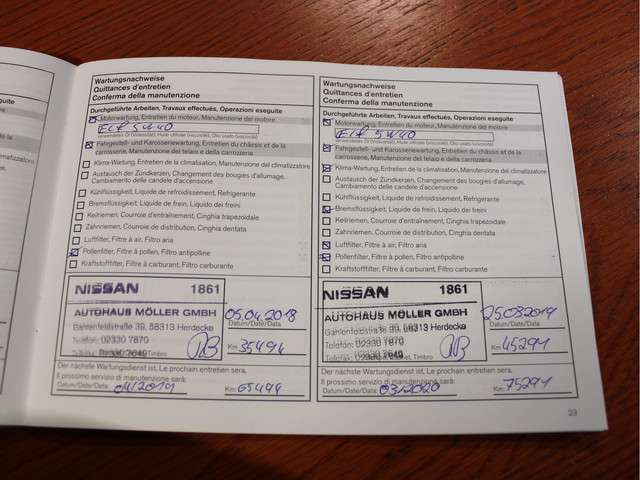 Wartungsnachweise
Quittances d'entretien
Conferma della manutenzione
Durchgeführte Arbeiten, Travaux effectués, Operazioni eseguite
Motorwartung, Entretien du moteur, Manutenzione del motore
5W40
Fahrgestell- und Karosseriewartung, Entretien du châssis et de la
carrosserie, Manutenzione del telaio e della carrozzeria
Klima-Wartung, Entretien de la climatisation, Manutenzione del climatizzatore
Austausch der Zündkerzen, Changement des bougies d'allumage,
Cambiamento delle candele d'accensione
Kühlflüssigkeit, Liquide de refroidissement, Refrigerante
Bremsflüssigkeit, Liquide de frein, Liquido dei freini
Keilriemen, Courroie d'entraînement, Cinghia trapezoidale
Zahnriemen, Courroie de distribution, Cinghia dentata
Luftfilter, Filtre à air, Filtro aria
Pollenfilter, Filtre à pollen, Filtro antipolline
Kraftstofffilter, Filtre à carburant, Filtro carburante
NISSAN 1861
AUTOHAUS MÖLLER GMBH
39, 58313 Herdecke
Telefon: 02330 7870
05.04.2018
Datum/Date/Data
Km 35494
Der nächste Wartungsdienst ist, Le prochain entretien sera,
Il prossimo servizio di manutenzione sarà:
Datum/Date/Data: 04/2019 Km: 65494
Wartungsnachweise
Quittances d'entretien
Conferma della manutenzione
Durchgeführte Arbeiten, Travaux effectués, Operazioni eseguite
Motorwartung, Entretien du moteur, Manutenzione del motore
5W40
Fahrgestell- und Karosseriewartung, Entretien du châssis et de la
carrosserie, Manutenzione del telaio e della carrozzeria
Klima-Wartung, Entretien de la climatisation, Manutenzione del climatizzatore
Austausch der Zündkerzen, Changement des bougies d'allumage,
Cambiamento delle candele d'accensione
Kühlflüssigkeit, Liquide de refroidissement, Refrigerante
Bremsflüssigkeit, Liquide de frein, Liquido dei freini
Keilriemen, Courroie d'entraînement, Cinghia trapezoidale
Zahnriemen, Courroie de distribution, Cinghia dentata
Luftfilter, Filtre à air, Filtro aria
Pollenfilter, Filtre à pollen, Filtro antipolline
Kraftstofffilter, Filtre à carburant, Filtro carburante
NISSAN 1861
AUTOHAUS MÖLLER GMBH
39, 58313 Herdecke
Telefon: 02330 7870
25.03.2019
Datum/Date/Data
Km 45291
Der nächste Wartungsdienst ist, Le prochain entretien sera,
Il prossimo servizio di manutenzione sarà:
Datum/Date/Data: 03/2020 Km: 75291
23